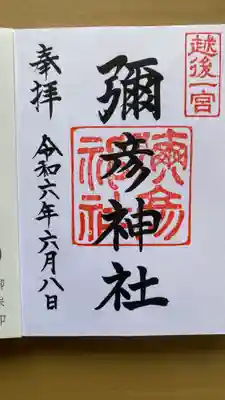 越後一宮
彌彦神社
奉拝
令和六年六月八日